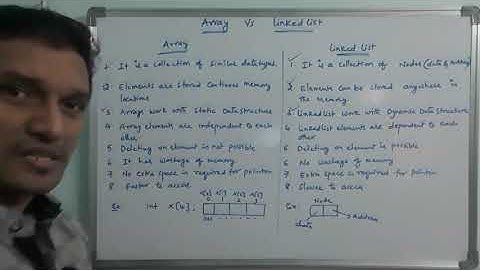 Array Vs Linked List
Array
1. It is a collection of Similar datatypes.
2. Elements are stored Continous memory
locations
3. Arrays work with Static Datastructure
4 Array elements are independent to each
other
5 Deleting an element is not possible
6 It has wastage of memory
7 No extra space is required for pointers
8 Faster to access
Ex int x[4];
x[0] x[1] x[2] x[3]
0 1 2 3
Linked List
1. It is a collection of Nodes (data & Address)
2 Elements can be stored anywhere in
the memory.
3 Linked List work with Dynamic Datastructure
4 Linked list elements are dependent to each
other
5 Deleting an element is possible
6 No wastage of memory
7 Extra space is required for pointers
8 Slower to access
Ex:
Node
Address
data